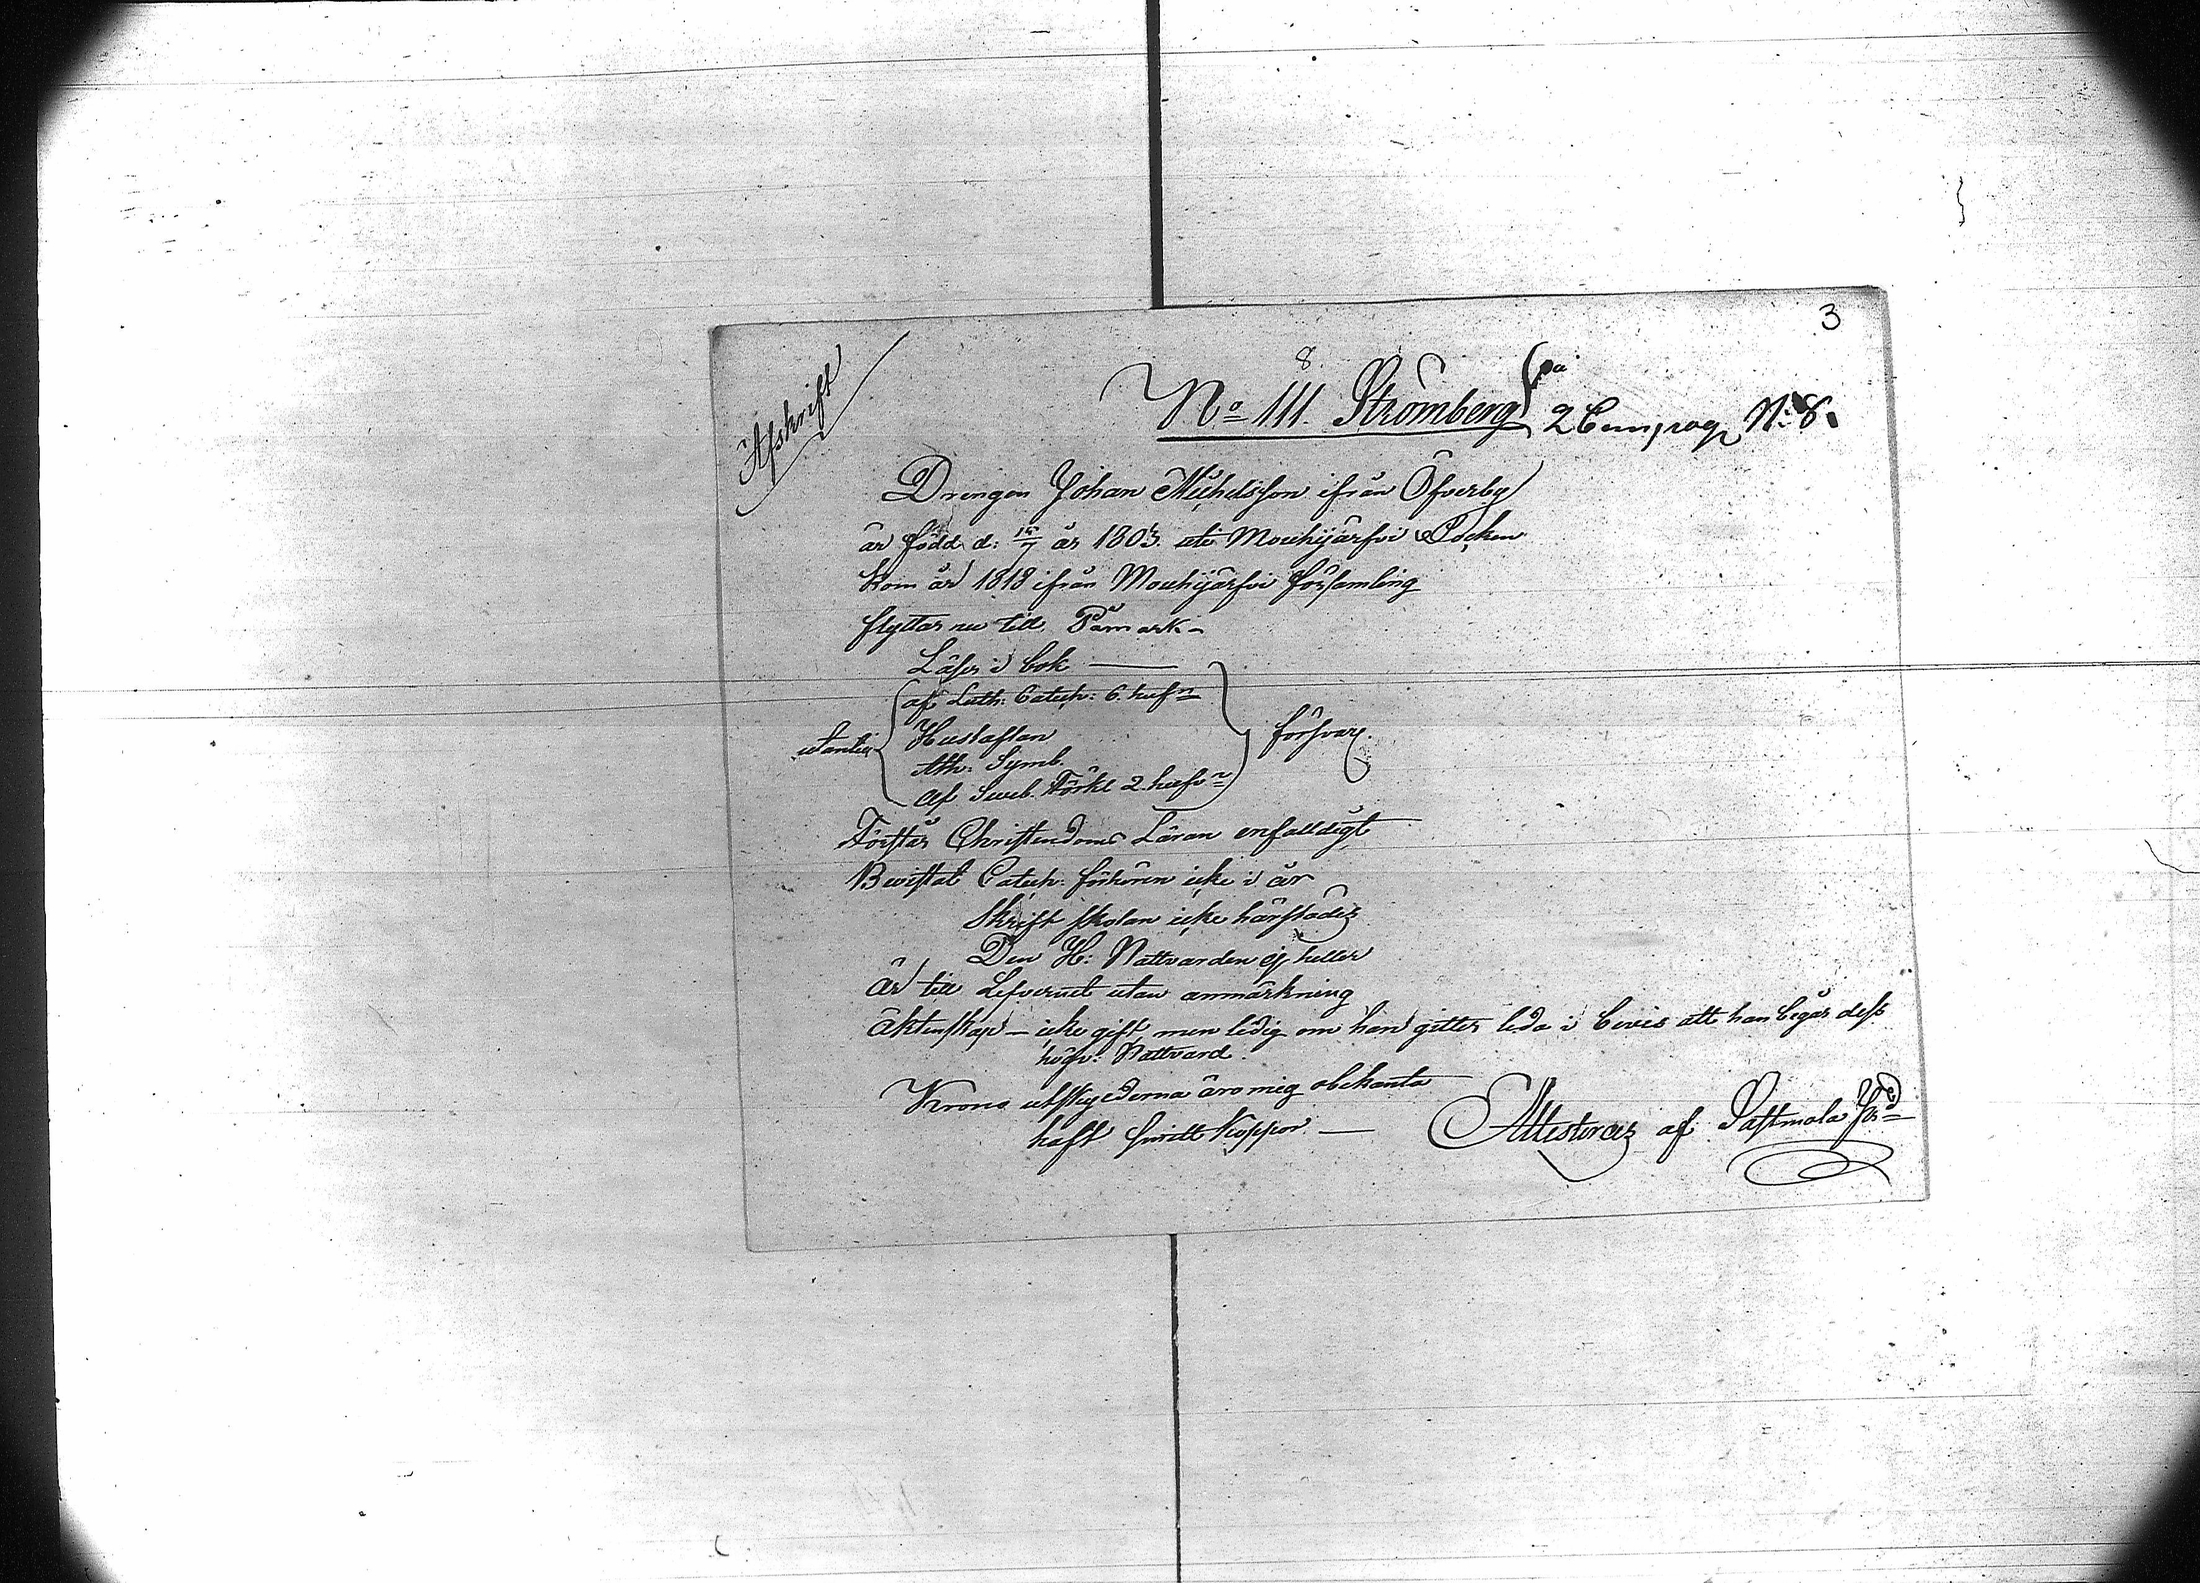 3
Afskrift
8.
No 111. Strömberg på
2 Compag N: 8.
Drengen Johan Michelsson ifrån Öfverby
är född d: 15/7 år 1803. uti Mouhijärfvi Socken
kom år 1818 ifrån Mouhijärfvi församling
flyttar nu till Påmark
Läser i bok
af Luth: Catech: 6. hufn
utantill Hustaflan försvarl.
Ath: Symb.
af Sveb. Förkl 2. hufvn
Förstår Christendoms Läran enfalldigt
Bevistat Catech: förhören icke i år
Skrift skolan icke härstädes
Den H: Nattvarden ej heller
Är till Lefvernet utan anmärkning
äktenskap – icke gift, men ledig om han gitter leda i bevis att han begår dess
högv: Nattvard.
Krono utskyderna äro mig obekanta
haft svidt koppor. Attesteras af Sastmola